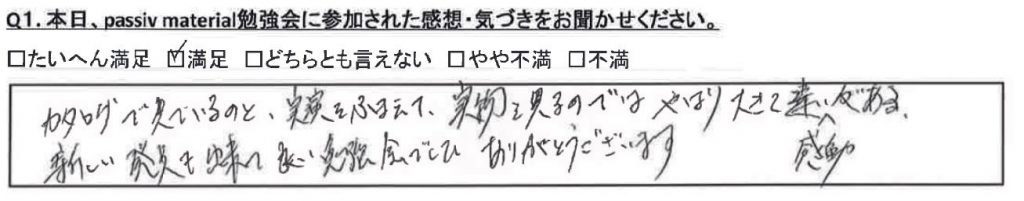 Q1. 本日、passiv material勉強会に参加された感想・気づきをお聞かせください。
□たいへん満足 ☑満足 □どちらとも言えない □やや不満 □不満
カタログで見ているのと、実演をふまえて、実物を見るのではやはり大きく違いがある。
新しい発見も出来て良い勉強会でした ありがとうございます 感動